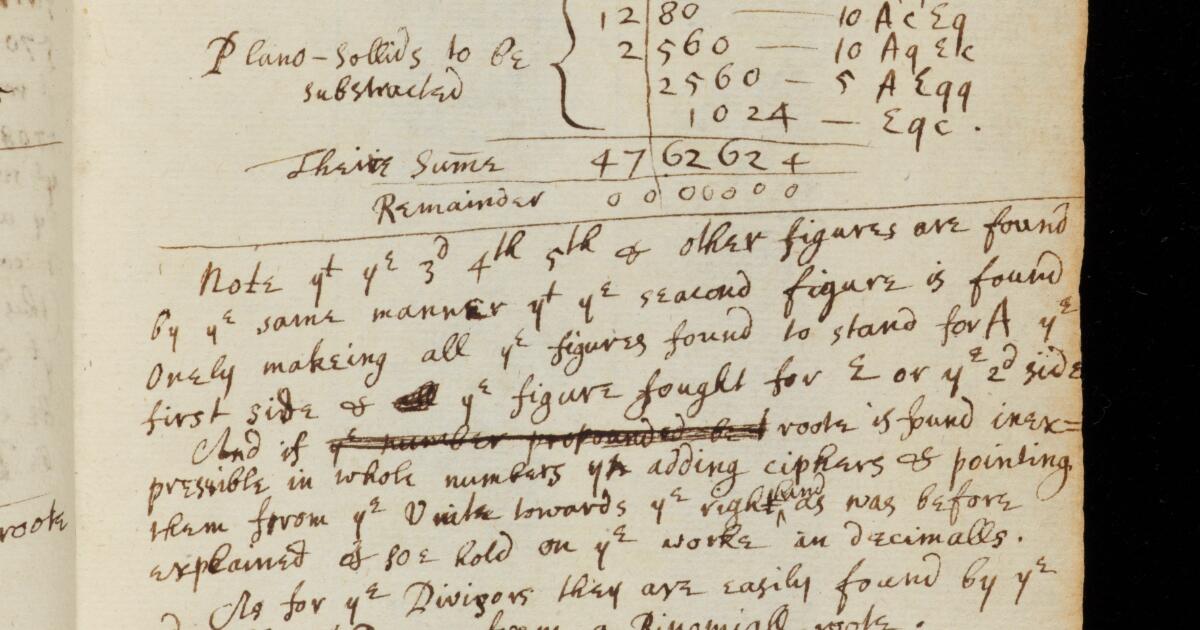 12|80 — 10 Ac Eq
Plano-sollids to be 2|560 — 10 Aq Ec
substracted 2560 — 5 A Eqq
1024 — Eqc.
Theire Sum̄e 47|62624
Remainder 0000000
Note yt ye 3d 4th 5th & other figures are found
by ye same manner yt ye seacond figure is found
Onely makeing all ye figures found to stand for A ye
first side & ye figure sought for E or ye 2d side
And if ye number propounded be t roote is found inex=
pressible in whole numbers yn adding ciphers & pointing
them from ye Unite towards ye right hand as was before
explained & soe hold on ye worke in decimalls.
As for ye Divisors they are easily found by ye
from a Binomiall roote.
roote